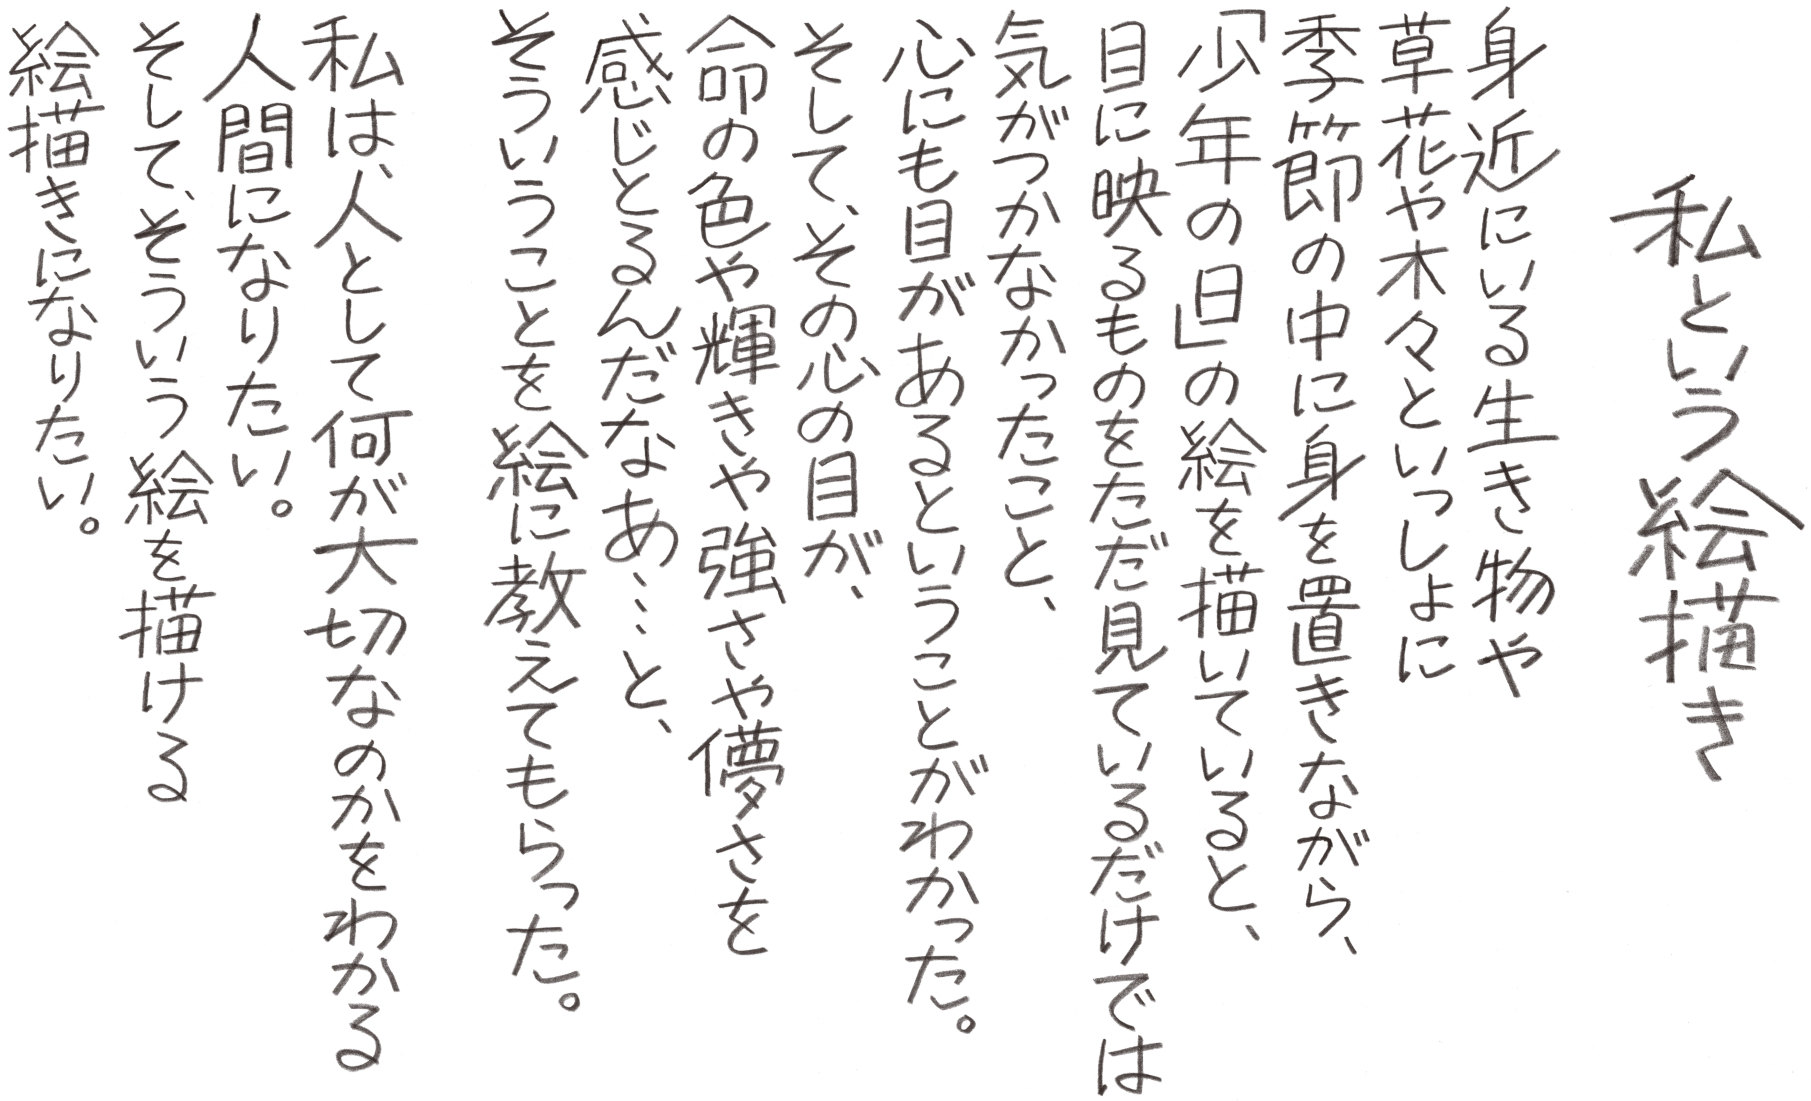 私という絵描き
身近にいる生き物や
草花や木々といっしょに
季節の中に身を置きながら、
「少年の日」の絵を描いていると、
目に映るものをただ見ているだけでは
気がつかなかったこと、
心にも目があるということがわかった。
そして、その心の目が、
命の色や輝きや強さや儚さを
感じとるんだなあ…と、
そういうことを絵に教えてもらった。
私は、人として何が大切なのかをわかる
人間になりたい。
そして、そういう絵を描ける
絵描きになりたい。